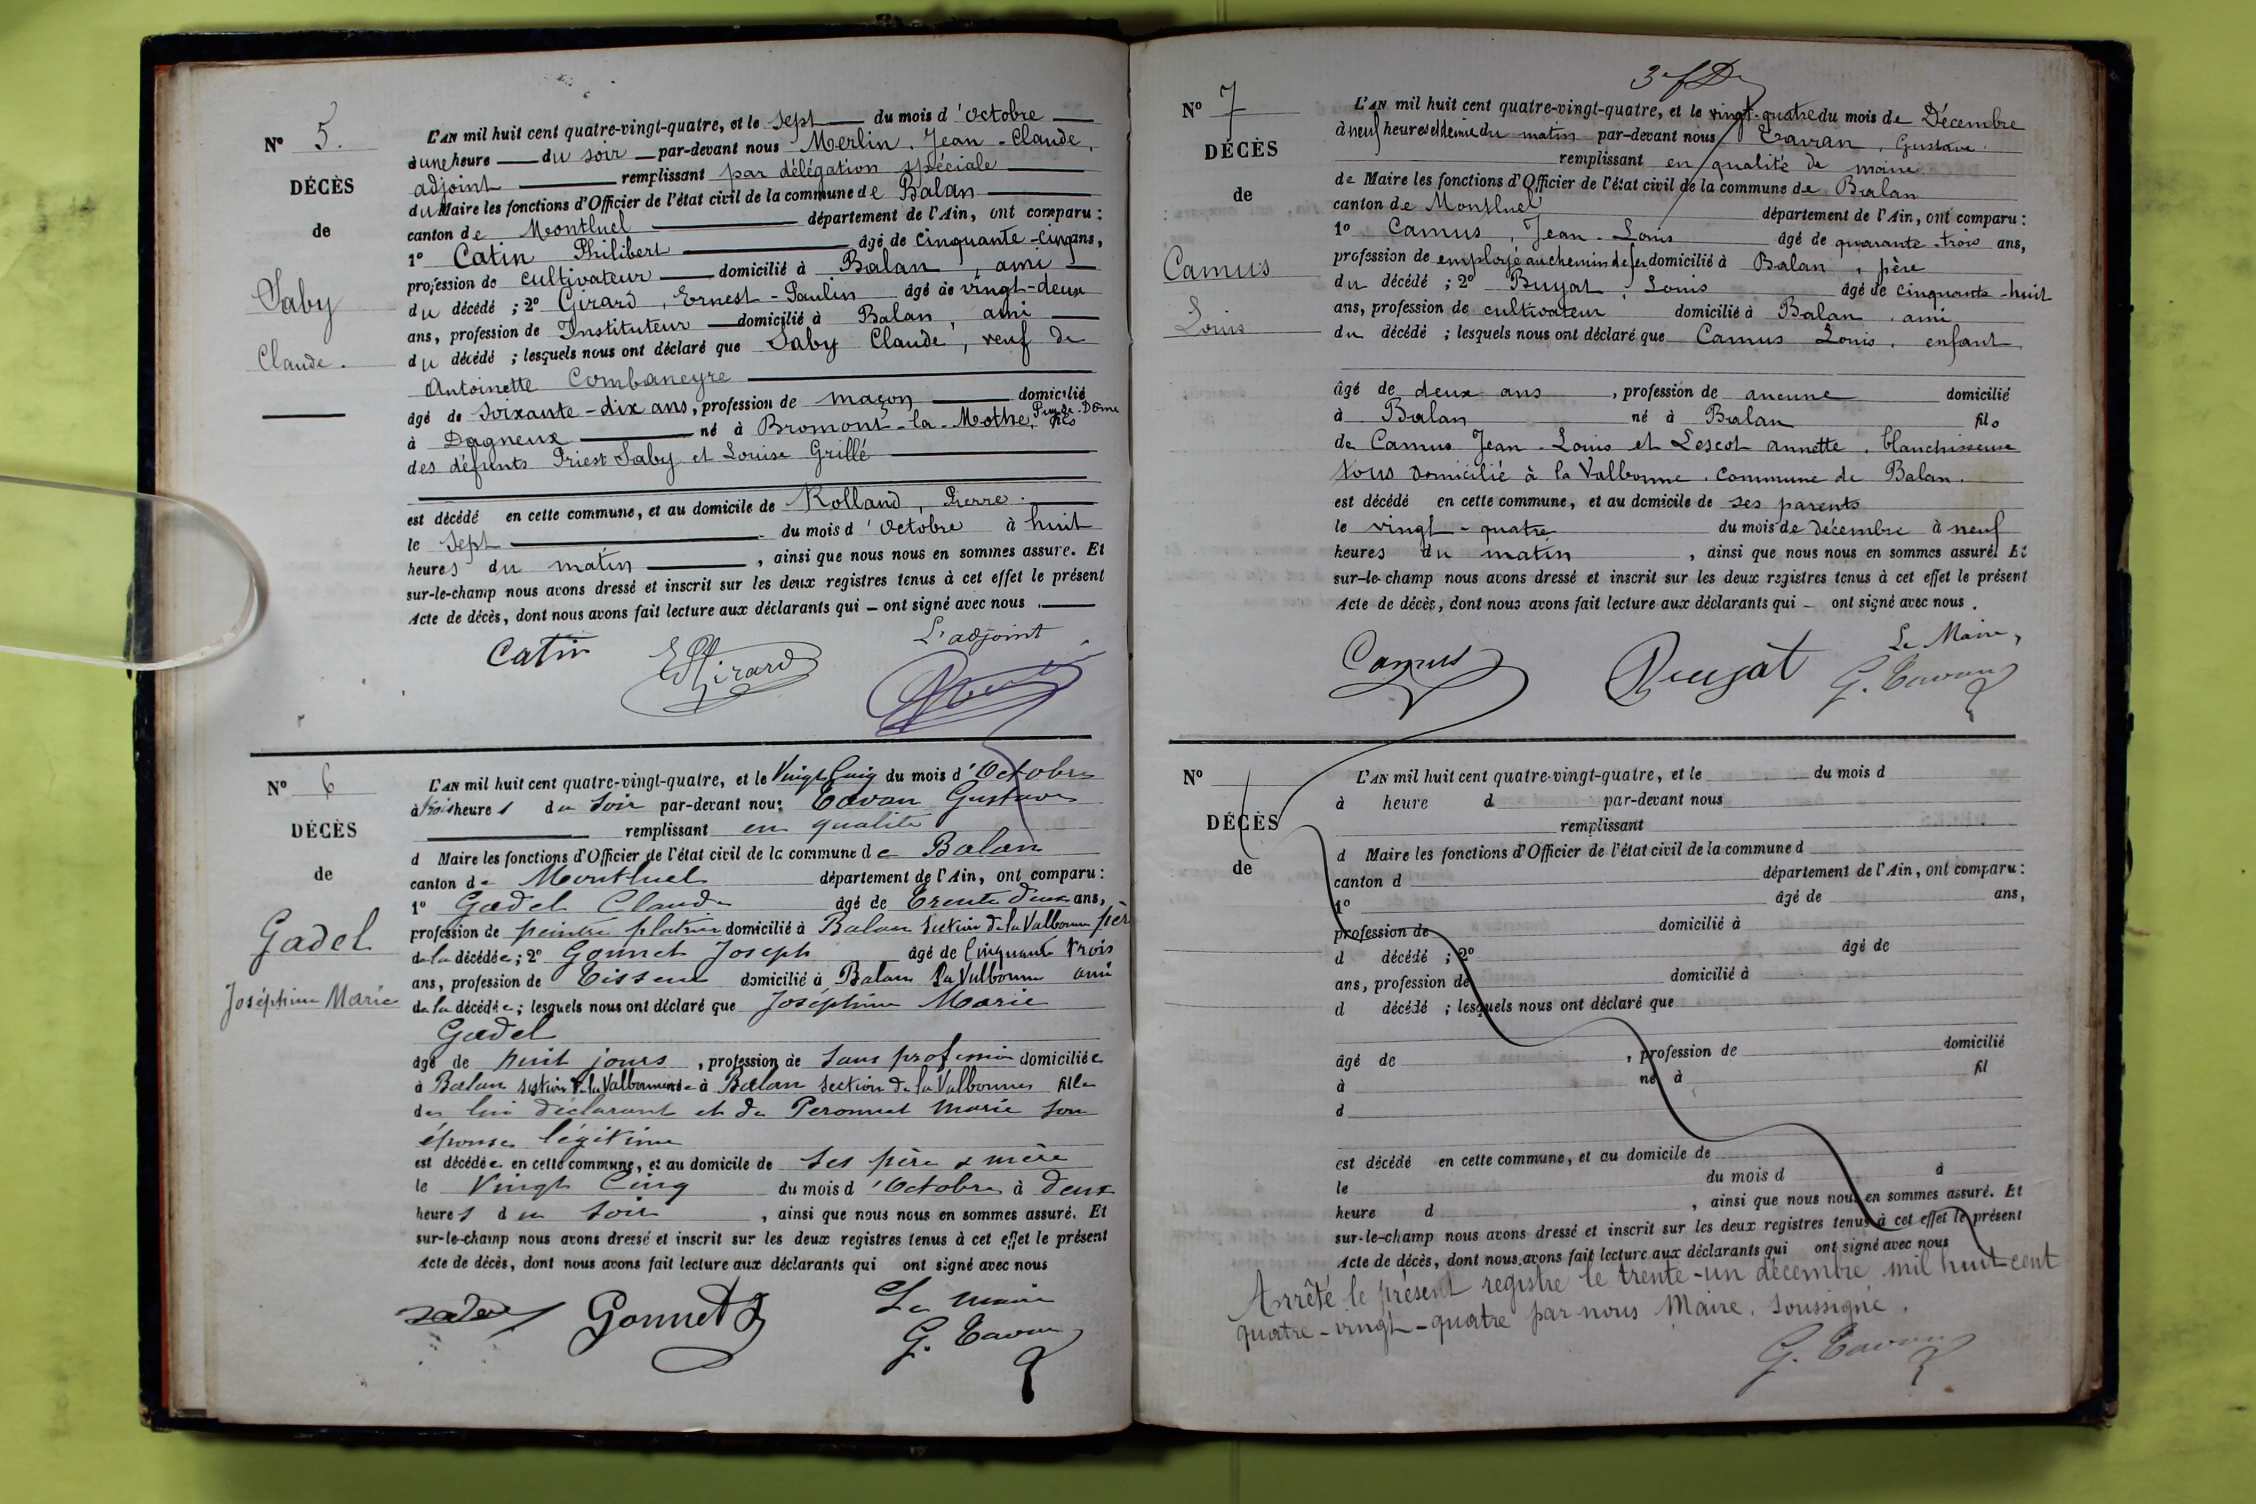 Nº 5.
DÉCÈS
de
Saby
Claude.
L'AN mil huit cent quatre-vingt-quatre, et le sept du mois d'octobre
à une heure du soir par-devant nous Merlin, Jean-Claude,
adjoint remplissant par délégation spéciale
du Maire les fonctions d'Officier de l'état civil de la commune de Balan
canton de Montluel département de l'Ain, ont comparu :
1º Catin Philibert âgé de cinquante-cinq ans,
profession de cultivateur domicilié à Balan, ami
du décédé ; 2º Girard, Ernest-Paulin âgé de vingt-deux
ans, profession de Instituteur domicilié à Balan, ami
du décédé ; lesquels nous ont déclaré que Saby Claude, veuf de
Antoinette Combaneyre
âgé de soixante-dix ans, profession de maçon domicilié
à Dagneux né à Bromont-la-Mothe, Puy-de-Dôme fils
des défunts Priest Saby et Louise Grillé
est décédé en cette commune, et au domicile de Rolland, Pierre.
le sept du mois d'octobre à huit
heures du matin, ainsi que nous nous en sommes assuré. Et
sur-le-champ nous avons dressé et inscrit sur les deux registres tenus à cet effet le présent
Acte de décès, dont nous avons fait lecture aux déclarants qui — ont signé avec nous.
L'adjoint
Catin EPGirard
Nº 6
DÉCÈS
de
Gadel
Joséphine Marie
L'AN mil huit cent quatre-vingt-quatre, et le Vingt Cinq du mois d'Octobre
à trois heures du Soir par-devant nous Tavan Gustave
remplissant en qualité
d Maire les fonctions d'Officier de l'état civil de la commune de Balan
canton de Montluel département de l'Ain, ont comparu :
1º Gadel Claude âgé de Trente deux ans,
profession de peintre platrier domicilié à Balan Section de la Valbonne père
de la décédée ; 2º Gonnet Joseph âgé de Cinquante trois
ans, profession de Tisseur domicilié à Balan La Valbonne ami
de la décédée ; lesquels nous ont déclaré que Joséphine Marie
Gadel
âgé de huit jours, profession de Sans profession domiciliée
à Balan Section de la Valbonne née à Balan Section de la Valbonne fille
de lui déclarant et de Peronnet Marie son
épouse légitime
est décédée en cette commune, et au domicile de Ses père & mère
le Vingt Cinq du mois d'Octobre à deux
heures du Soir, ainsi que nous nous en sommes assuré. Et
sur-le-champ nous avons dressé et inscrit sur les deux registres tenus à cet effet le présent
Acte de décès, dont nous avons fait lecture aux déclarants qui ont signé avec nous
Le Maire
Gadel Gonnet J G. Tavan
Nº 7
DÉCÈS
de
Camus
Louis
L'AN mil huit cent quatre-vingt-quatre, et le vingt-quatre du mois de Décembre
à neuf heures et demie du matin par-devant nous Tavan, Gustave
remplissant en qualité de maire
de Maire les fonctions d'Officier de l'état civil de la commune de Balan
canton de Montluel département de l'Ain, ont comparu :
1º Camus, Jean-Louis âgé de quarante-trois ans,
profession de employé au chemin de fer domicilié à Balan, père
du décédé ; 2º Buyat, Louis âgé de cinquante-huit
ans, profession de cultivateur domicilié à Balan, ami
du décédé ; lesquels nous ont déclaré que Camus Louis, enfant
âgé de deux ans, profession de aucune domicilié
à Balan né à Balan fils
de Camus Jean-Louis et Lescot annette, blanchisseuse
tous domicilié à la Valbonne, commune de Balan.
est décédé en cette commune, et au domicile de ses parents
le vingt-quatre du mois de décembre à neuf
heures du matin, ainsi que nous nous en sommes assuré. Et
sur-le-champ nous avons dressé et inscrit sur les deux registres tenus à cet effet le présent
Acte de décès, dont nous avons fait lecture aux déclarants qui — ont signé avec nous.
Le Maire,
Camus Buyat G. Tavan
Nº
DÉCÈS
de
L'AN mil huit cent quatre-vingt-quatre, et le du mois d
à heure d par-devant nous
remplissant
d Maire les fonctions d'Officier de l'état civil de la commune d
canton d département de l'Ain, ont comparu :
1º âgé de ans,
profession de domicilié à
d décédé ; 2º âgé de
ans, profession de domicilié à
d décédé ; lesquels nous ont déclaré que
âgé de , profession de domicilié
à né à fil
d
est décédé en cette commune, et au domicile de
le du mois d à
heure d , ainsi que nous nous en sommes assuré. Et
sur-le-champ nous avons dressé et inscrit sur les deux registres tenus à cet effet le présent
Acte de décès, dont nous avons fait lecture aux déclarants qui ont signé avec nous
Arrêté le présent registre le trente-un décembre mil huit cent
quatre-vingt-quatre par nous Maire, soussigné.
G. Tavan